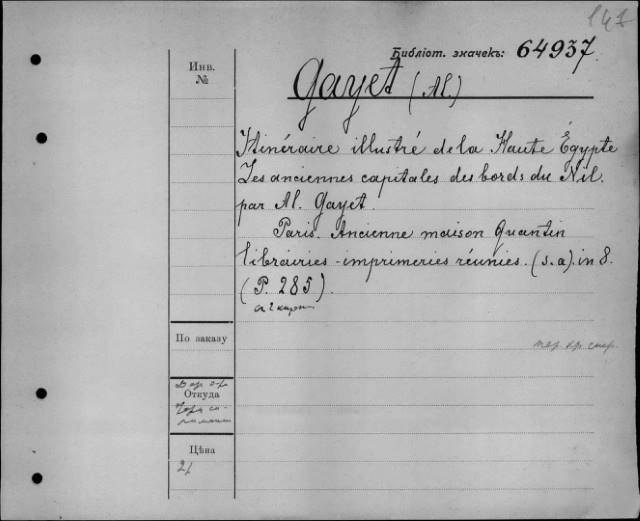 147
Библіот. значекъ: 64937.
Инв.
№
Gayet (Al.)
Itinéraire illustré de la Haute Égypte
Les anciennes capitales des bords du Nil.
par Al. Gayet.
Paris. Ancienne maison Quantin
librairies-imprimeries réunies. (s.a). in 8.
(P. 285).
По заказу
Откуда
Цѣна
2/